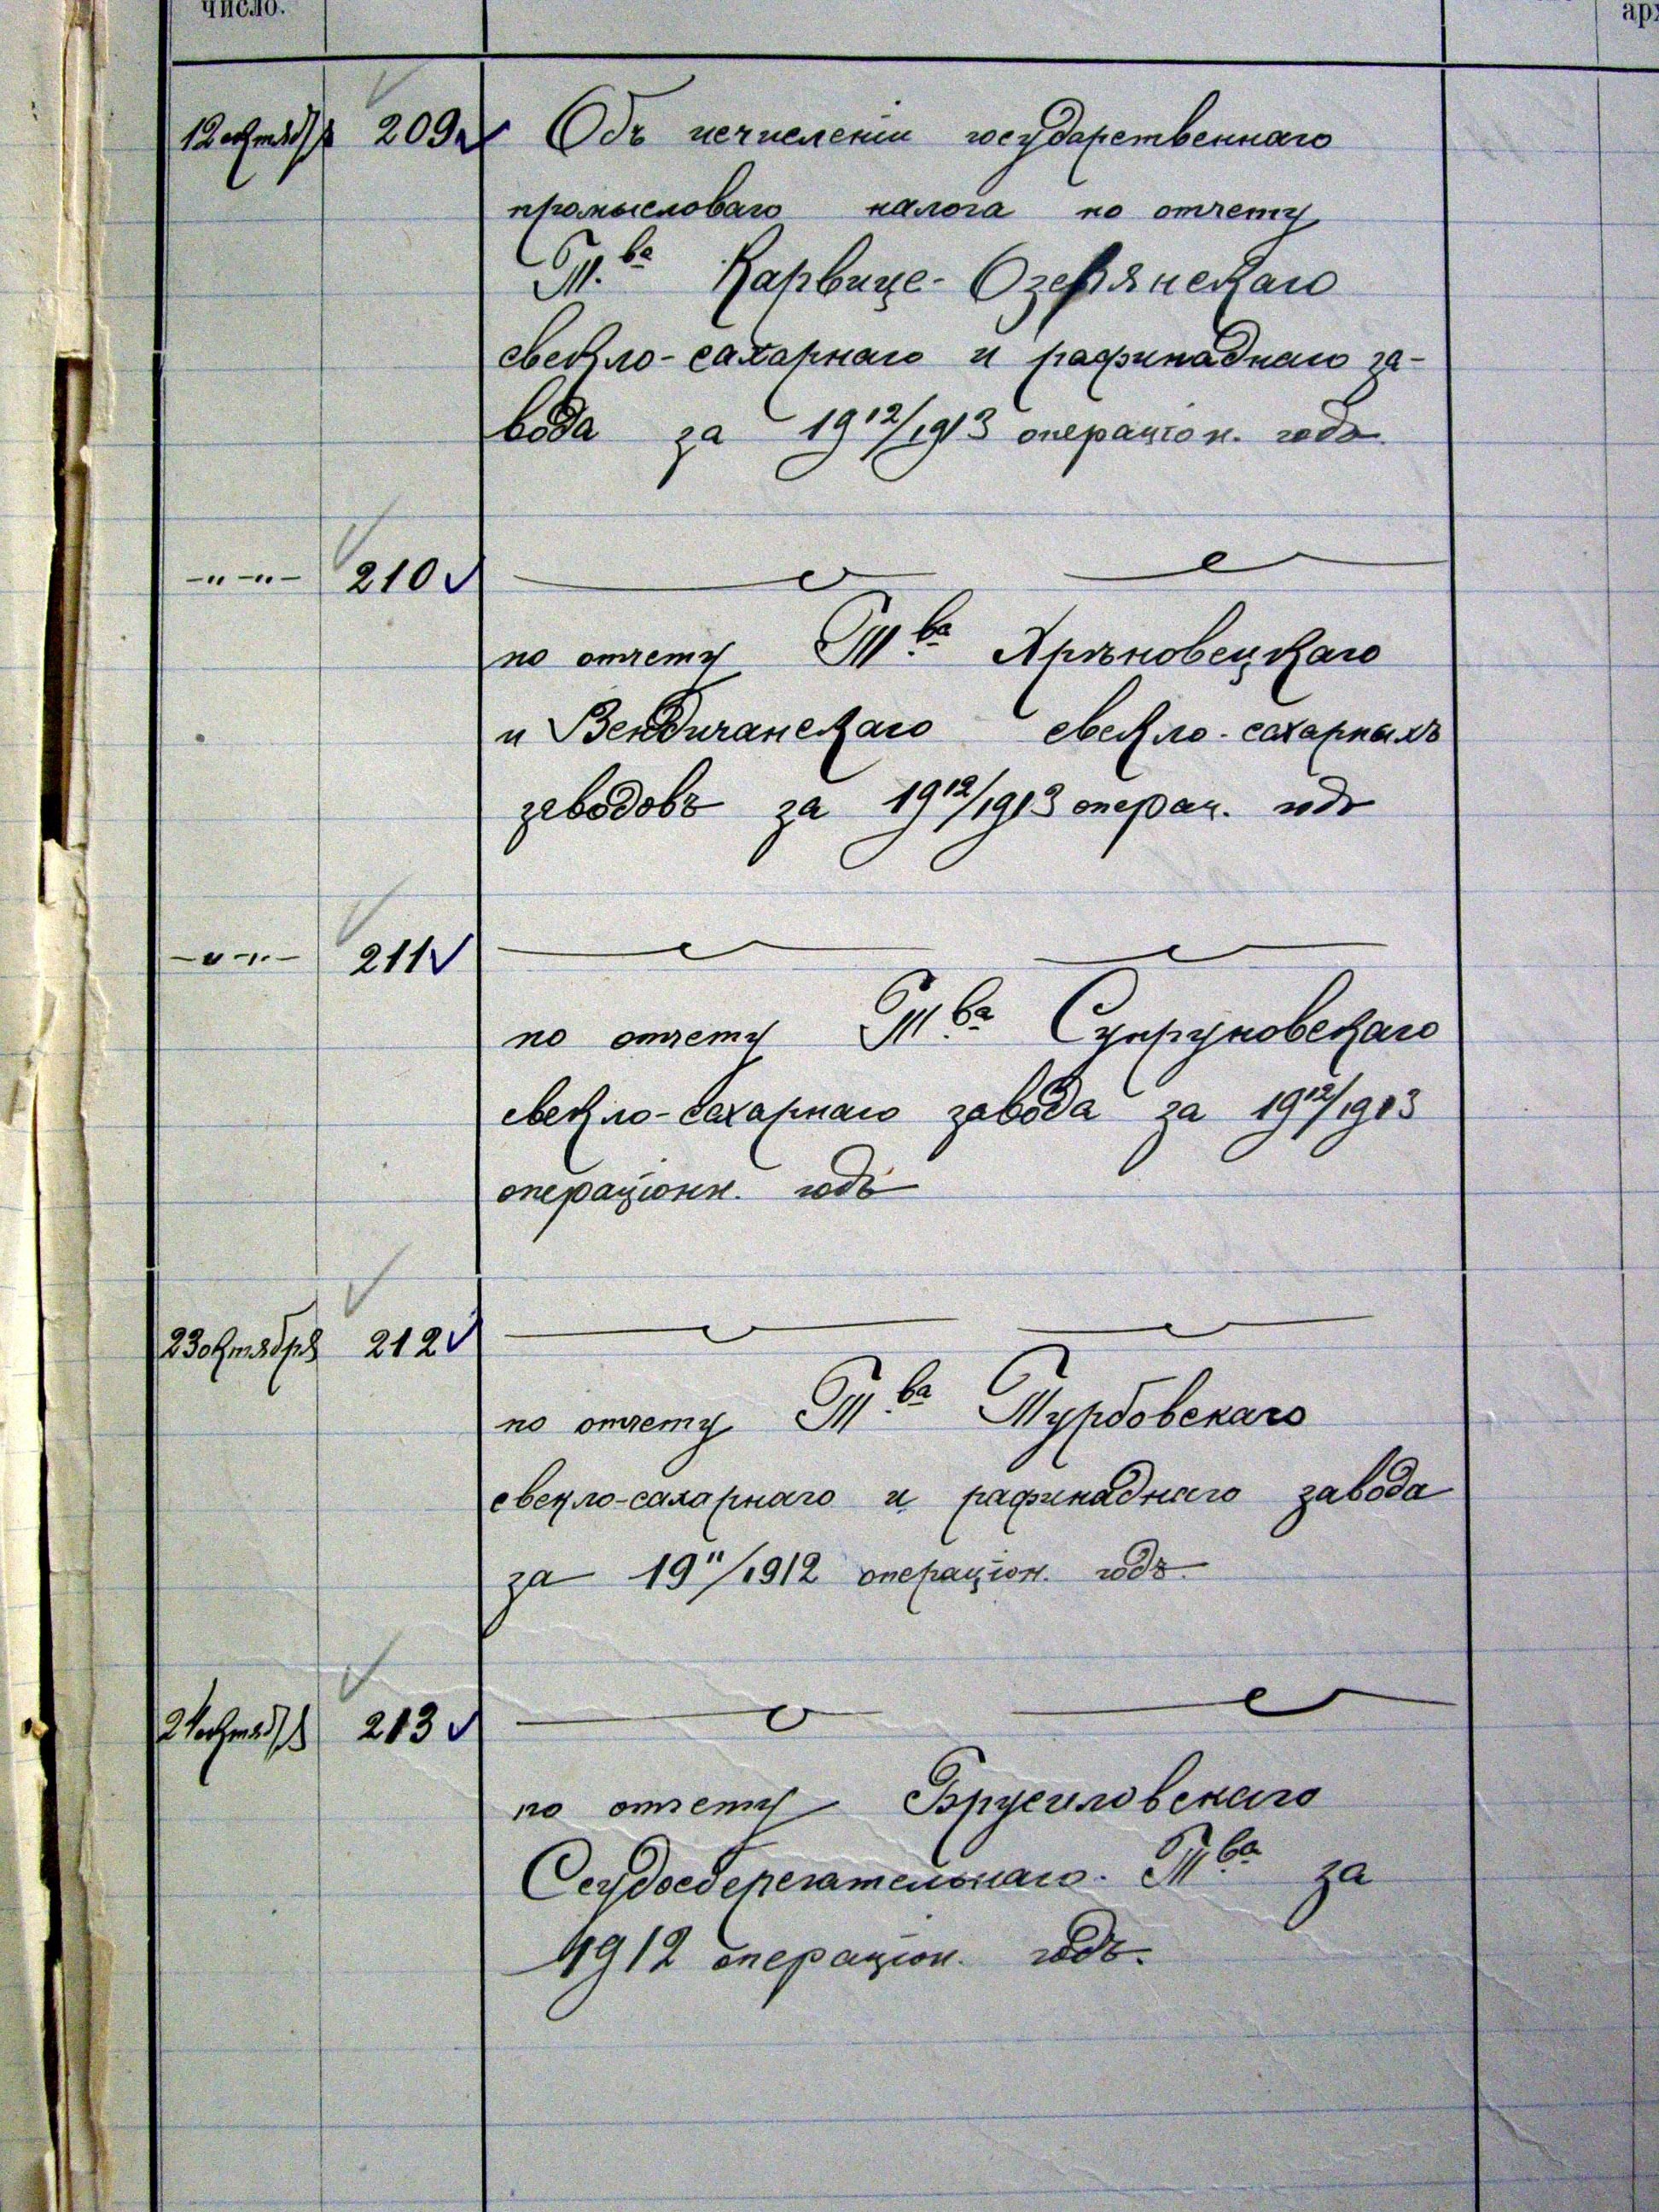 число.
арх
12 октября 209 Объ исчисленіи государственнаго
промысловаго налога по отчету
Т.ва Карвице-Озерянскаго
свекло-сахарнаго и рафинаднаго за-
вода за 1912/1913 операціон. годъ.
-"-"- 210
по отчету Т.ва Хрѣновецкаго
и Вендичанскаго свекло-сахарныхъ
заводовъ за 1912/1913 операц. годъ
-"-"- 211
по отчету Т.ва Супруновскаго
свекло-сахарнаго завода за 1912/1913
операціонн. годъ
23 октября 212
по отчету Т.ва Турбовскаго
свекло-сахарнаго и рафинаднаго завода
за 1911/1912 операціон. годъ.
24 октября 213
по отчету Брусиловскаго
Ссудосберегательнаго Т.ва за
1912 операціон. годъ.